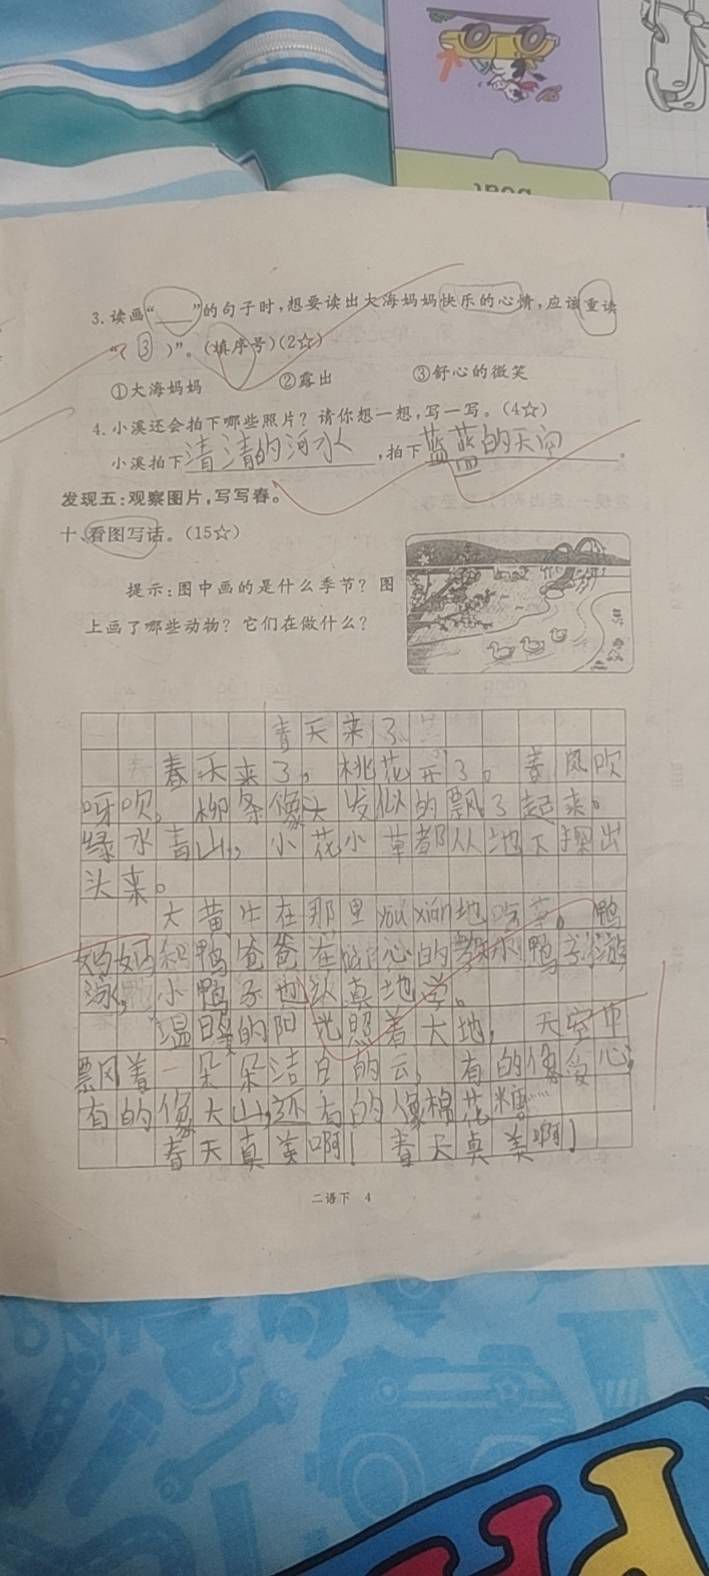 3.读画“____”的句子时,想要读出大海妈妈快乐的心情,应该重读
“( ③ )”。(填序号)(2☆)
①大海妈妈 ②露出 ③舒心的微笑
4.小溪还会拍下哪些照片?请你想一想,写一写。(4☆)
小溪拍下清清的河水,拍下蓝蓝的天空。
发现五:观察图片,写写春。
十、看图写话。(15☆)
提示:图中画的是什么季节?图
上画了哪些动物?它们在做什么?
春天来了
春天来了,桃花开了。春风吹
呀吹,柳条像头发似的飘了起来。
绿水青山,小花小草都从地下探出
头来。
大黄牛在那里you xián地吃草。鸭
妈妈和鸭爸爸在耐心的教小鸭子游
泳,小鸭子也认真地学。
温暖的阳光照着大地,天空中
飘着一朵朵洁白的云,有的像爱心,
有的像大山,还有的像棉花糖……
春天真美啊!春天真美啊!
二语下 4